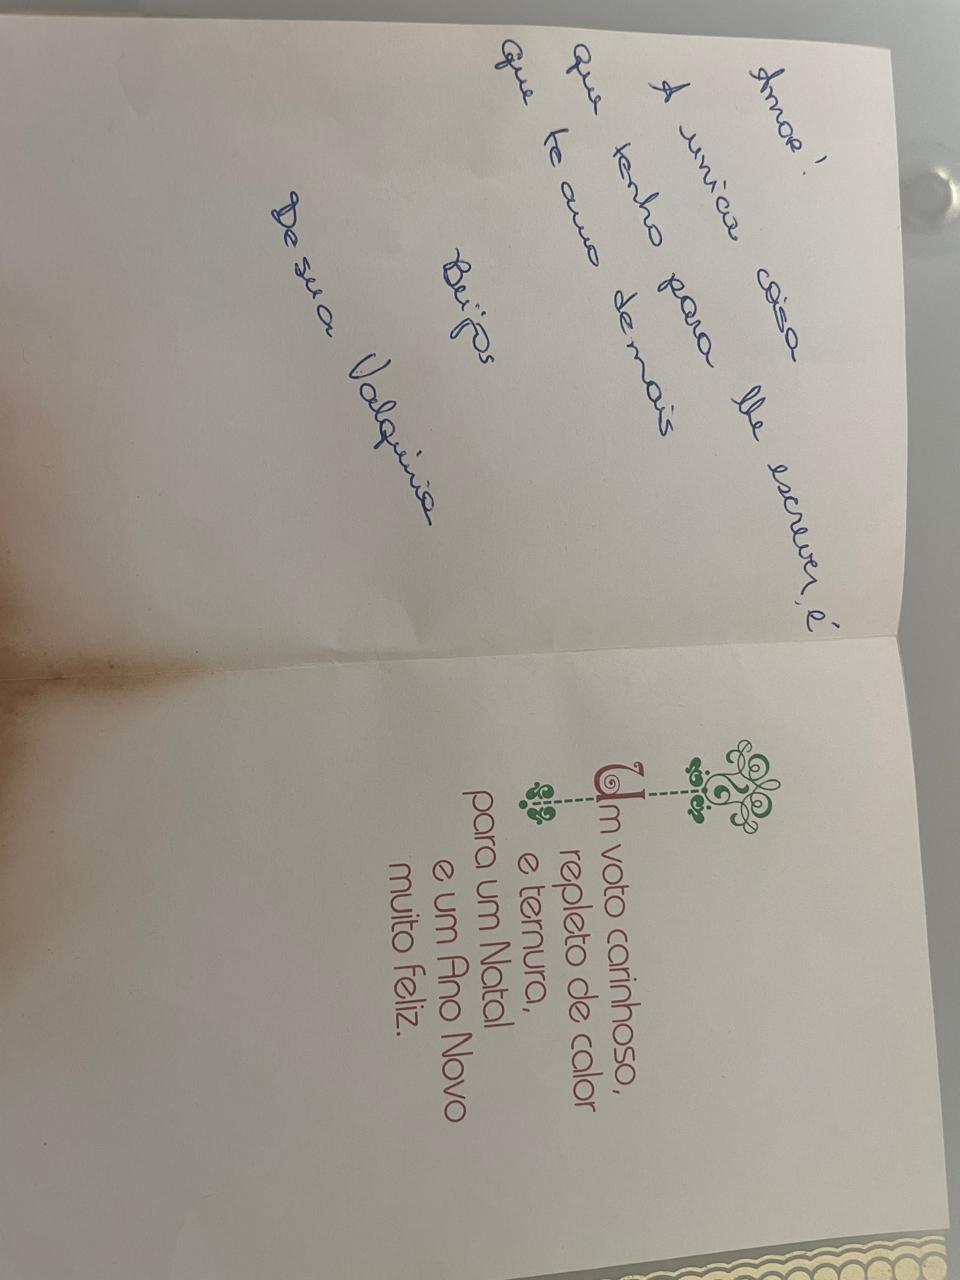 Amor!
A unica coisa
que tenho para lhe escrever, é
que te amo demais
Beijos
De sua Valquiria
Um voto carinhoso,
repleto de calor
e ternura,
para um Natal
e um Ano Novo
muito feliz.